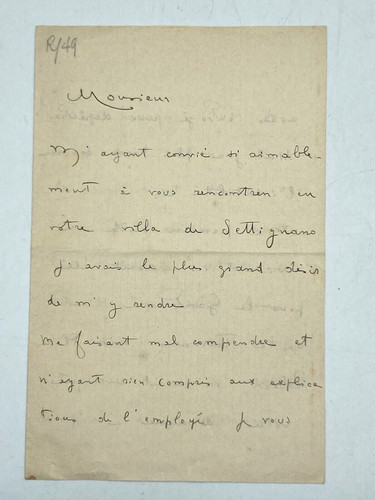 R/49
Monsieur
M'ayant convié si aimable-
ment à vous rencontrer en
votre villa de Settignano
j'avais le plus grand désir
de m'y rendre
me faisant mal comprendre et
n'ayant rien compris aux explica
tions de l'employé je vous